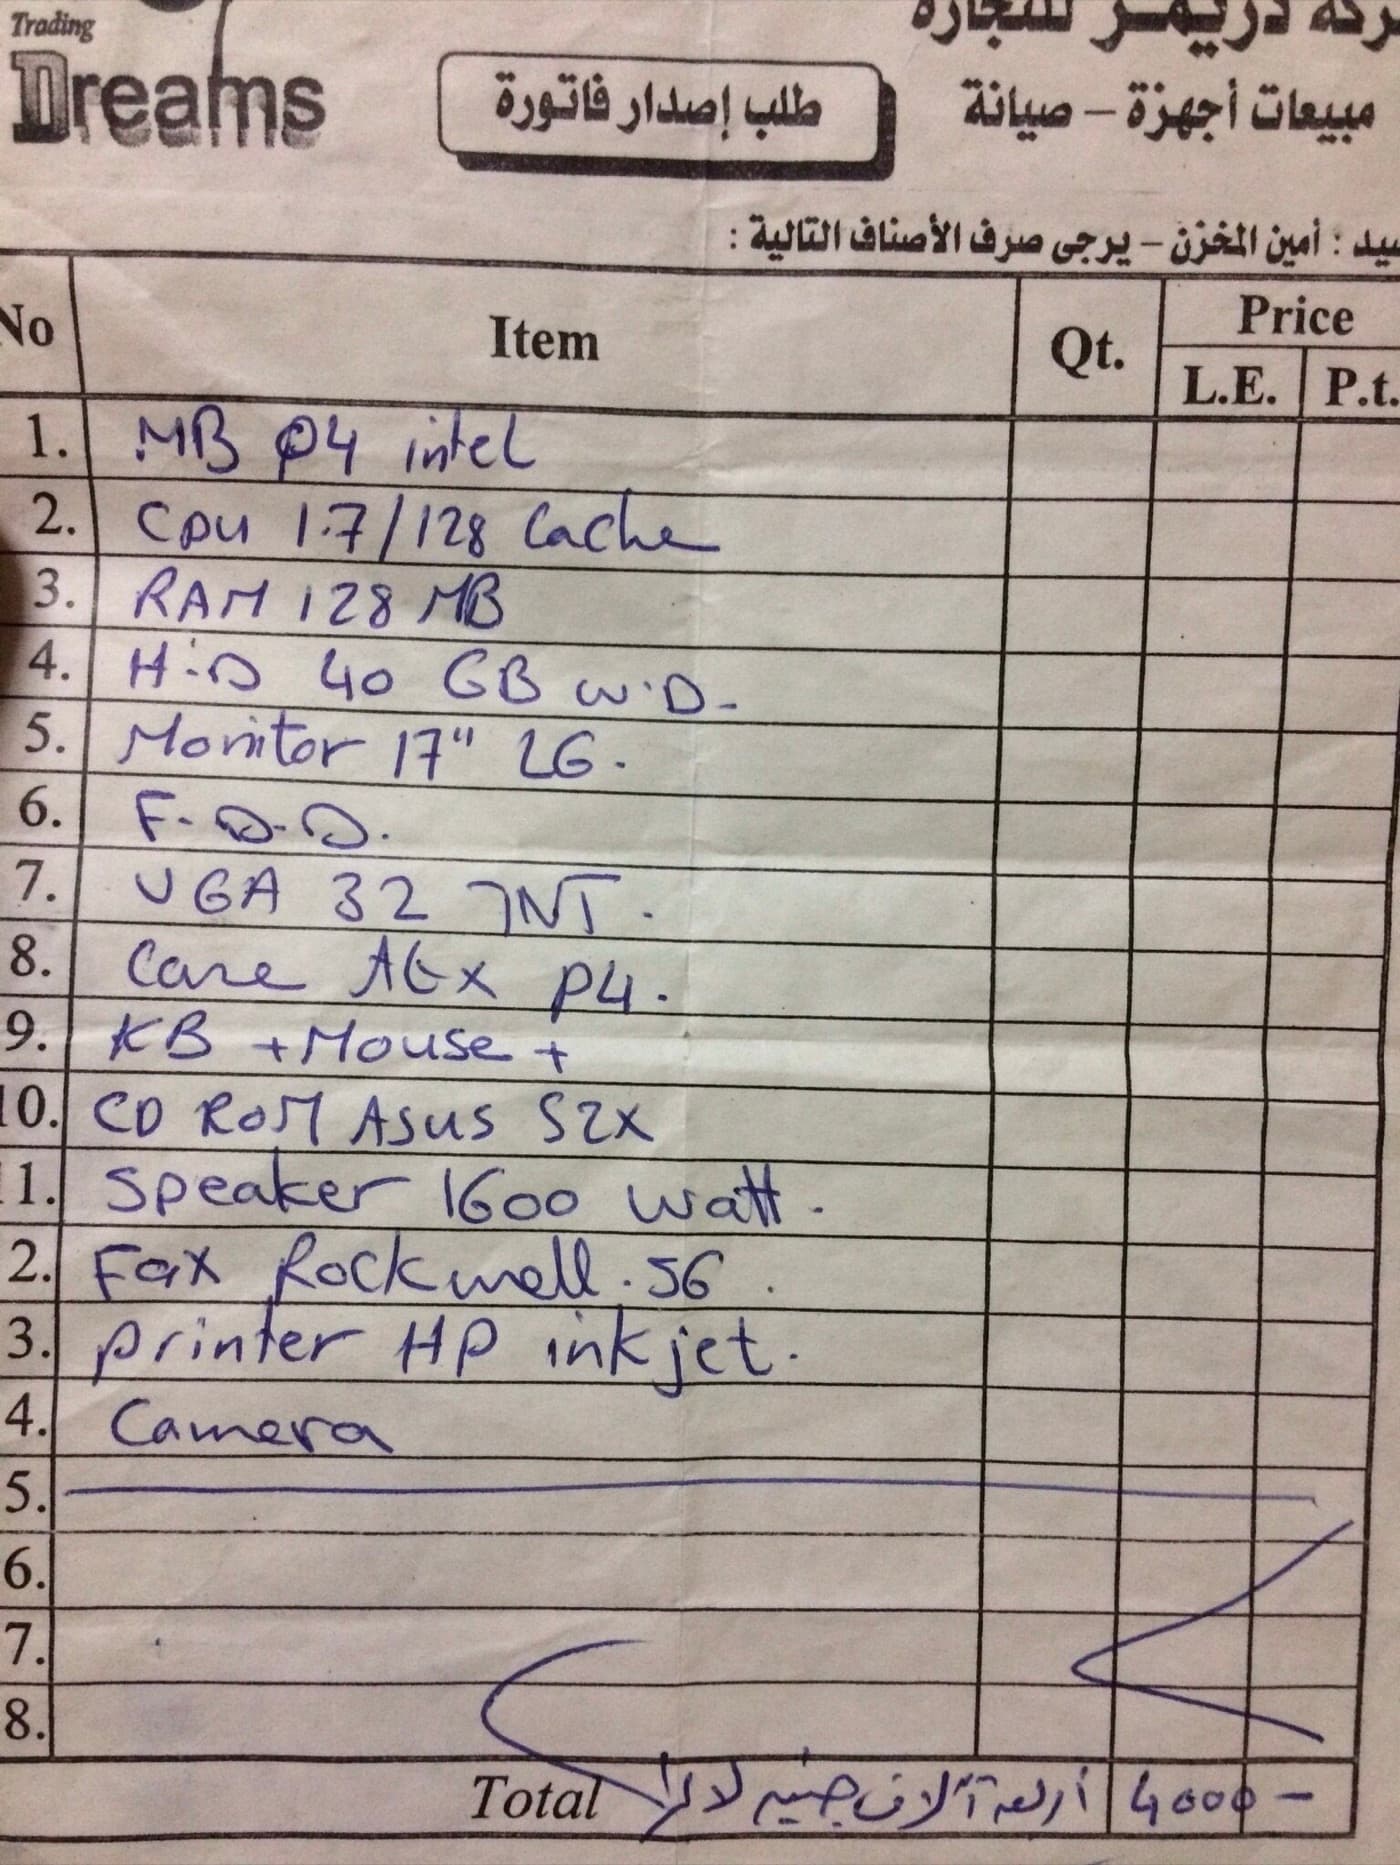 Trading
Dreams
طلب إصدار فاتورة
دريمز للتجارة
مبيعات أجهزة - صيانة
أمين المخزن - يرجى صرف الأصناف التالية :
No Item Qt. Price
L.E. P.t.
1. MB P4 intel
2. CPU 1.7/128 Cache
3. RAM 128 MB
4. H.D 40 GB W.D-
5. Monitor 17" LG.
6. F.D.D.
7. VGA 32 TNT.
8. Case Atx P4.
9. KB + Mouse +
10. CD ROM Asus 52x
1. Speaker 1600 watt.
2. Fax Rockwell.56.
3. printer HP inkjet.
4. Camera
5.
6.
7.
8.
Total أربعة آلاف جنيه لا غير 4000 -